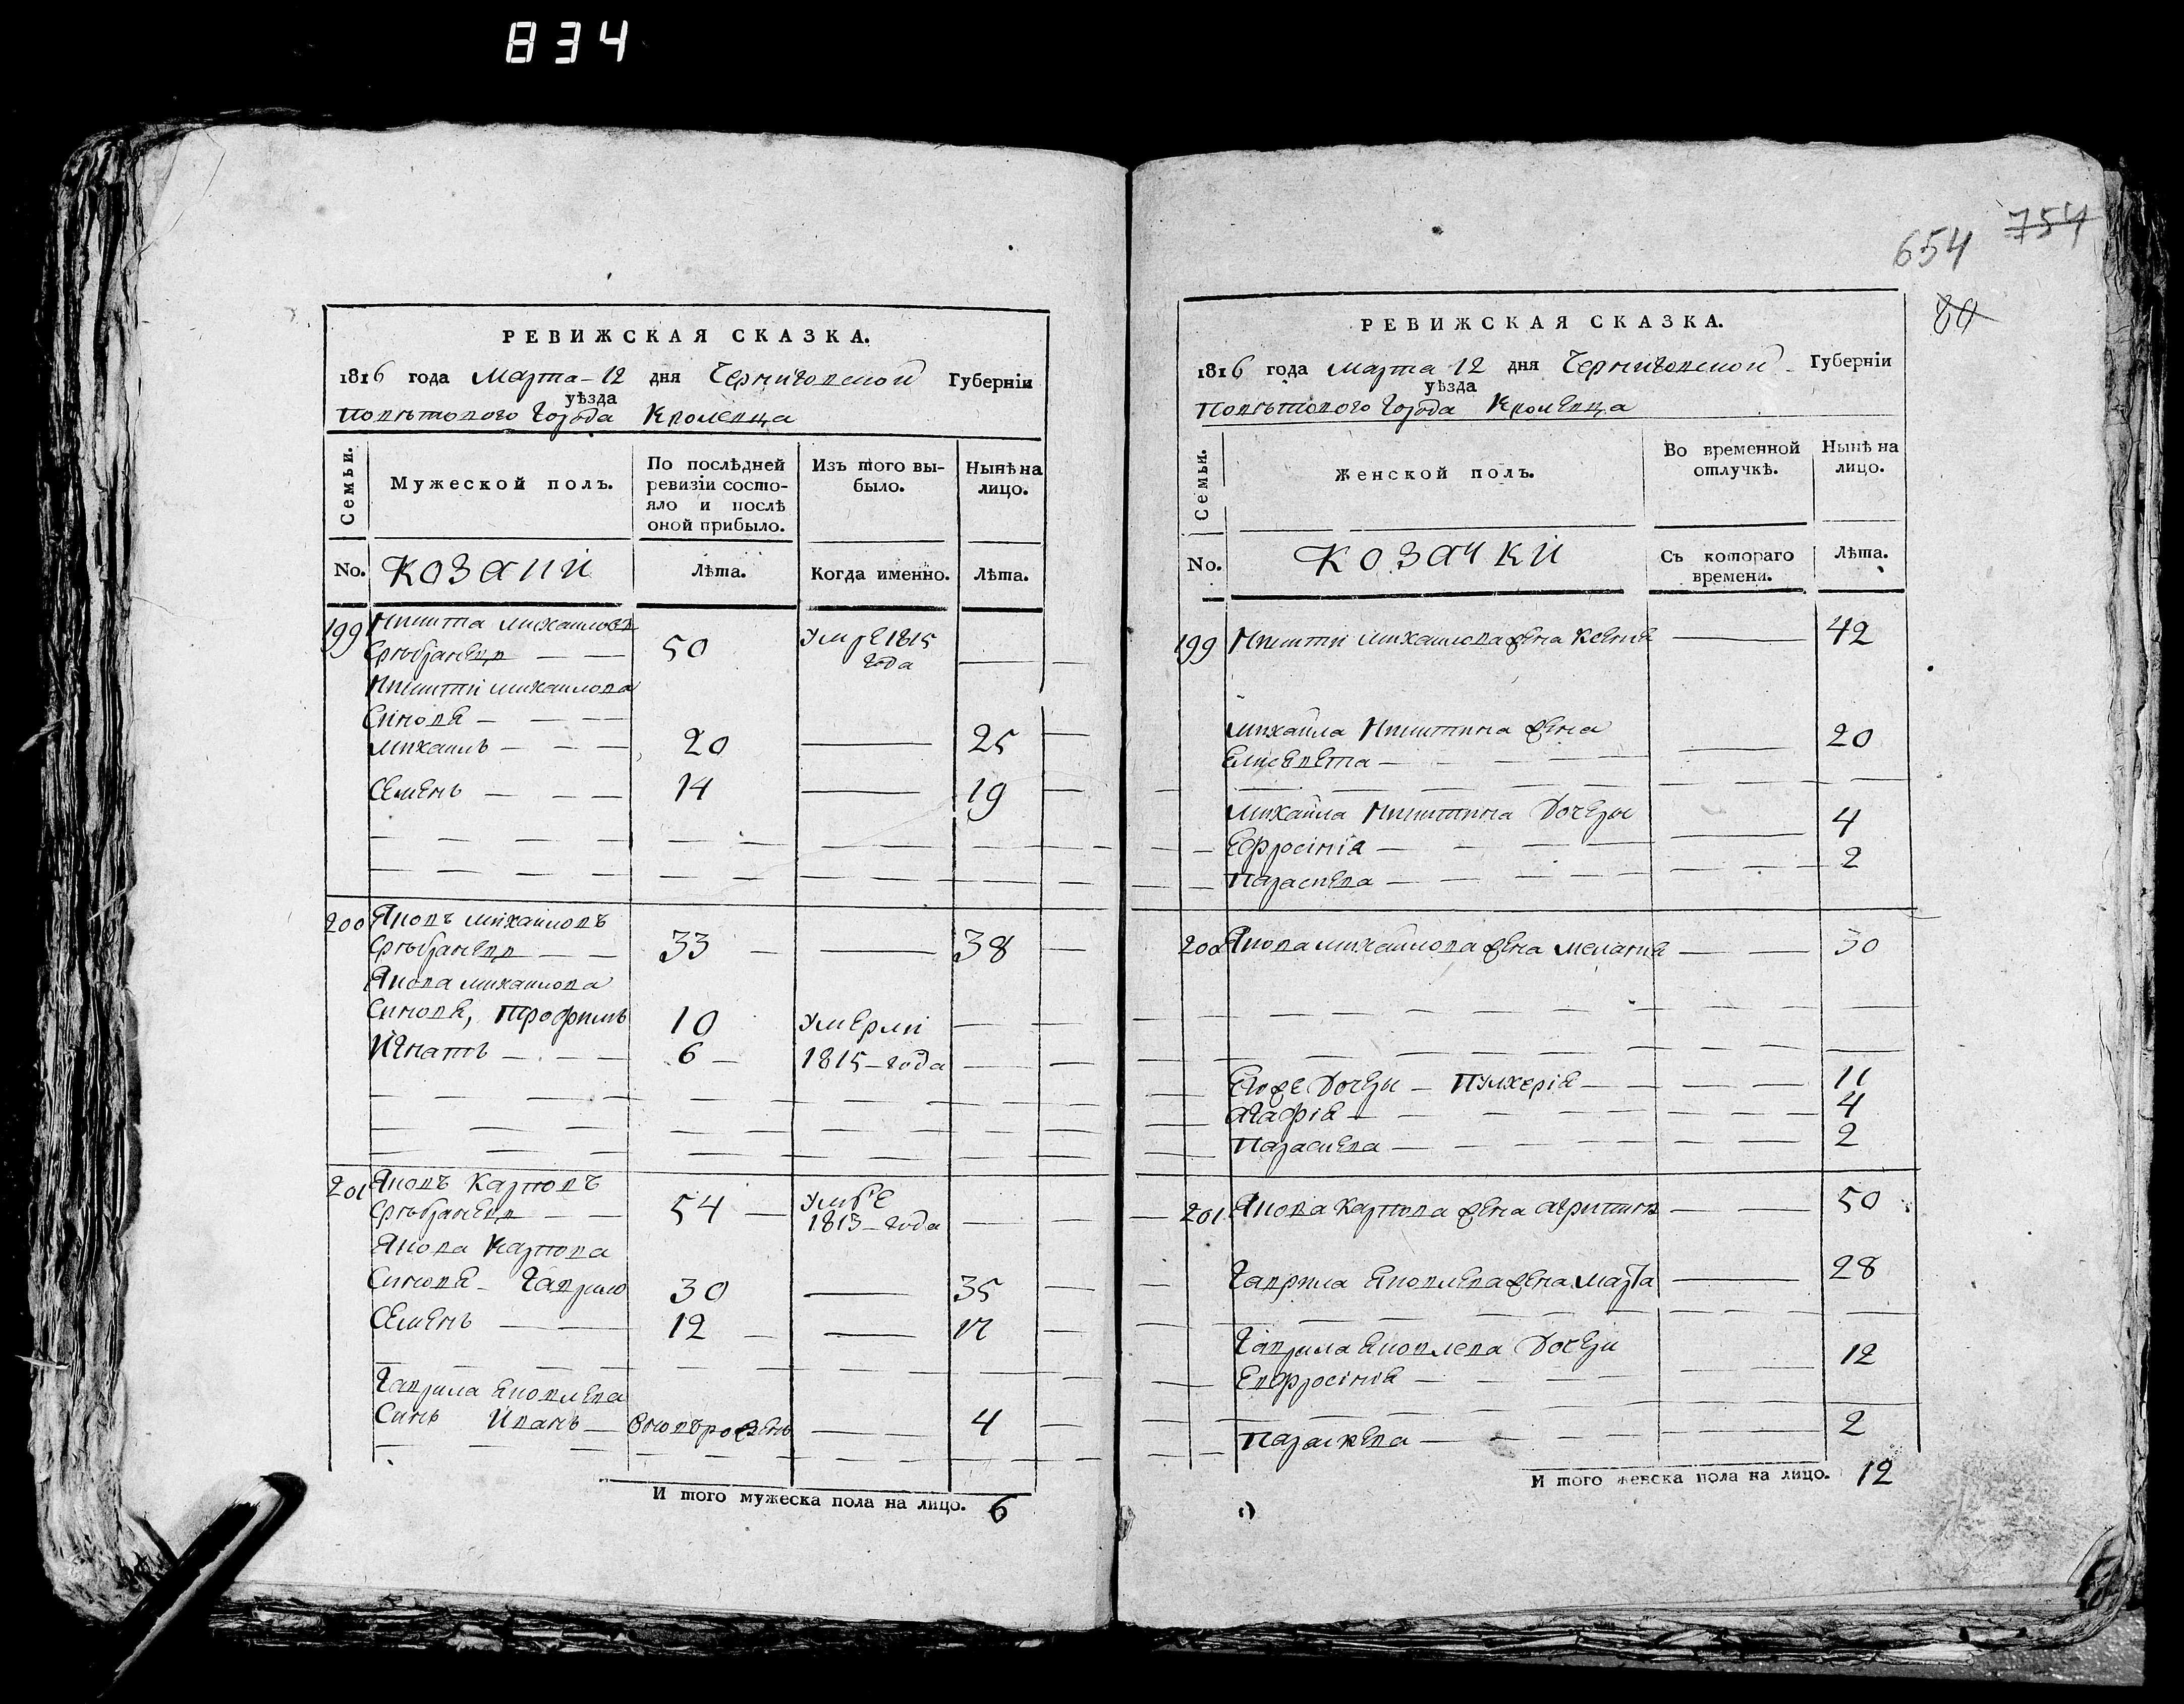 834
РЕВИЖСКАЯ СКАЗКА.
1816 года Марта 12 дня Черниговской Губерніи
уѣзда
Повѣтового Города Кролевца
Семьи.
Мужеской полъ.
По послѣдней ревизіи состояло и послѣ оной прибыло.
Изъ того выбыло.
Нынѣ на лицо.
No. Козаки
Лѣта.
Когда именно.
Лѣта.
199 Никита Михаиловъ
50 Умре 1815
года
Никити Михаилова
Синовя
Михаилъ 20 25
Семенъ 14 19
200 Яковъ Михаиловъ
33 38
Якова Михаилова
Синовя, Трофимъ 10 Умерли
Игнатъ 6 1815 года
201 Яковъ Карповъ
54 Умре
1813 года
Якова Карпова
Синовя Гаврило 30 35
Семенъ 12 17
Гаврила Яковлева
Синъ Иванъ вновърожденъ 4
И того мужеска пола на лицо. 6
654 754
80
РЕВИЖСКАЯ СКАЗКА.
1816 года Марта 12 дня Черниговской Губерніи
уѣзда
Повѣтового Города Кролевца
Семьи.
Женской полъ.
Во временной отлучкѣ.
Нынѣ на лицо.
No. Козачки
Съ котораго времени.
Лѣта.
199 Никити Михаилова жена Ксения 42
Михайла Никитина жена
Елисевета 20
Михайла Никитина Дочеры
Ефросінія 4
Параскева 2
200 Якова Михайлова жена Мелания 30
Егоже Дочеры Пулхерія 11
Агафія 4
Параскева 2
201 Якова Карпова жена Агрипина 50
Гаврила Яковлева жена Марfа 28
Гаврила Яковлева Дочери
Евфросінія 12
Параскева 2
И того женска пола на лицо. 12